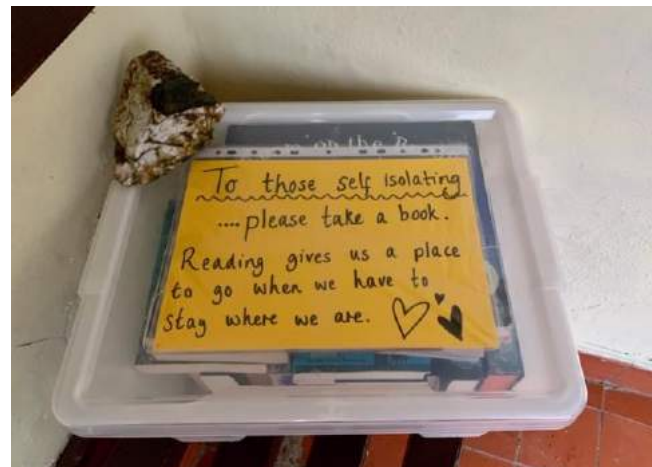 on the
To those self isolating
.... please take a book.
Reading gives us a place
to go when we have to
stay where we are.